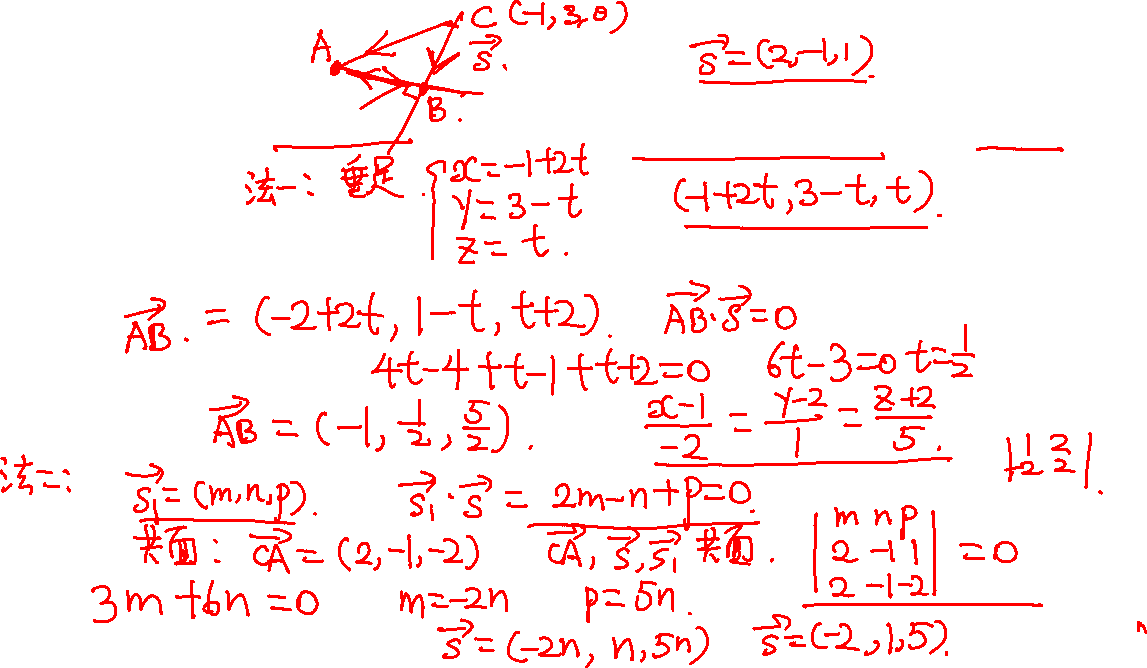 C(-1,3,0)
A
s⃗.
B.
s⃗=(2,-1,1)
法一: 垂足. { x=-1+2t
y=3-t
z=t.
(-1+2t,3-t,t).
AB⃗. =(-2+2t,1-t,t+2). AB⃗·s⃗=0
4t-4+t-1+t+2=0 6t-3=0 t=1/2
AB⃗=(-1,1/2,5/2). (x-1)/-2=(y-2)/1=(z+2)/5.
法二: s₁⃗=(m,n,p). s₁⃗·s⃗=2m-n+p=0.
共面: CA⃗=(2,-1,-2) CA⃗,s⃗,s₁⃗共面. |m n p
2 -1 1
2 -1 -2|=0
3m+6n=0 m=-2n p=5n.
s⃗=(-2n,n,5n) s⃗=(-2,1,5).